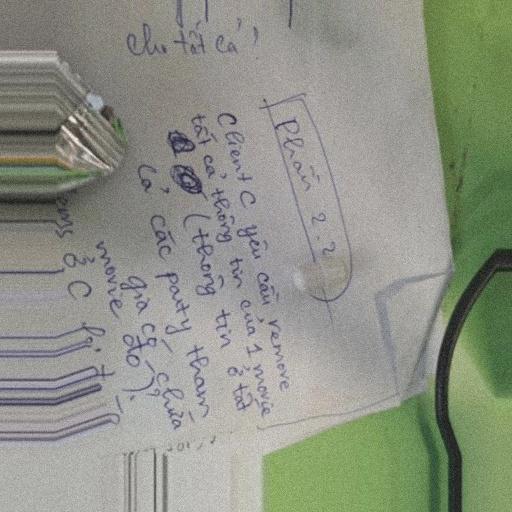 cho tất cả!
Phần 2.2
Client C yêu cầu remove
tất cả thông tin của 1 movie
(thông tin ở tất
cả các party tham
gia có chứa
movie đó).
ở C